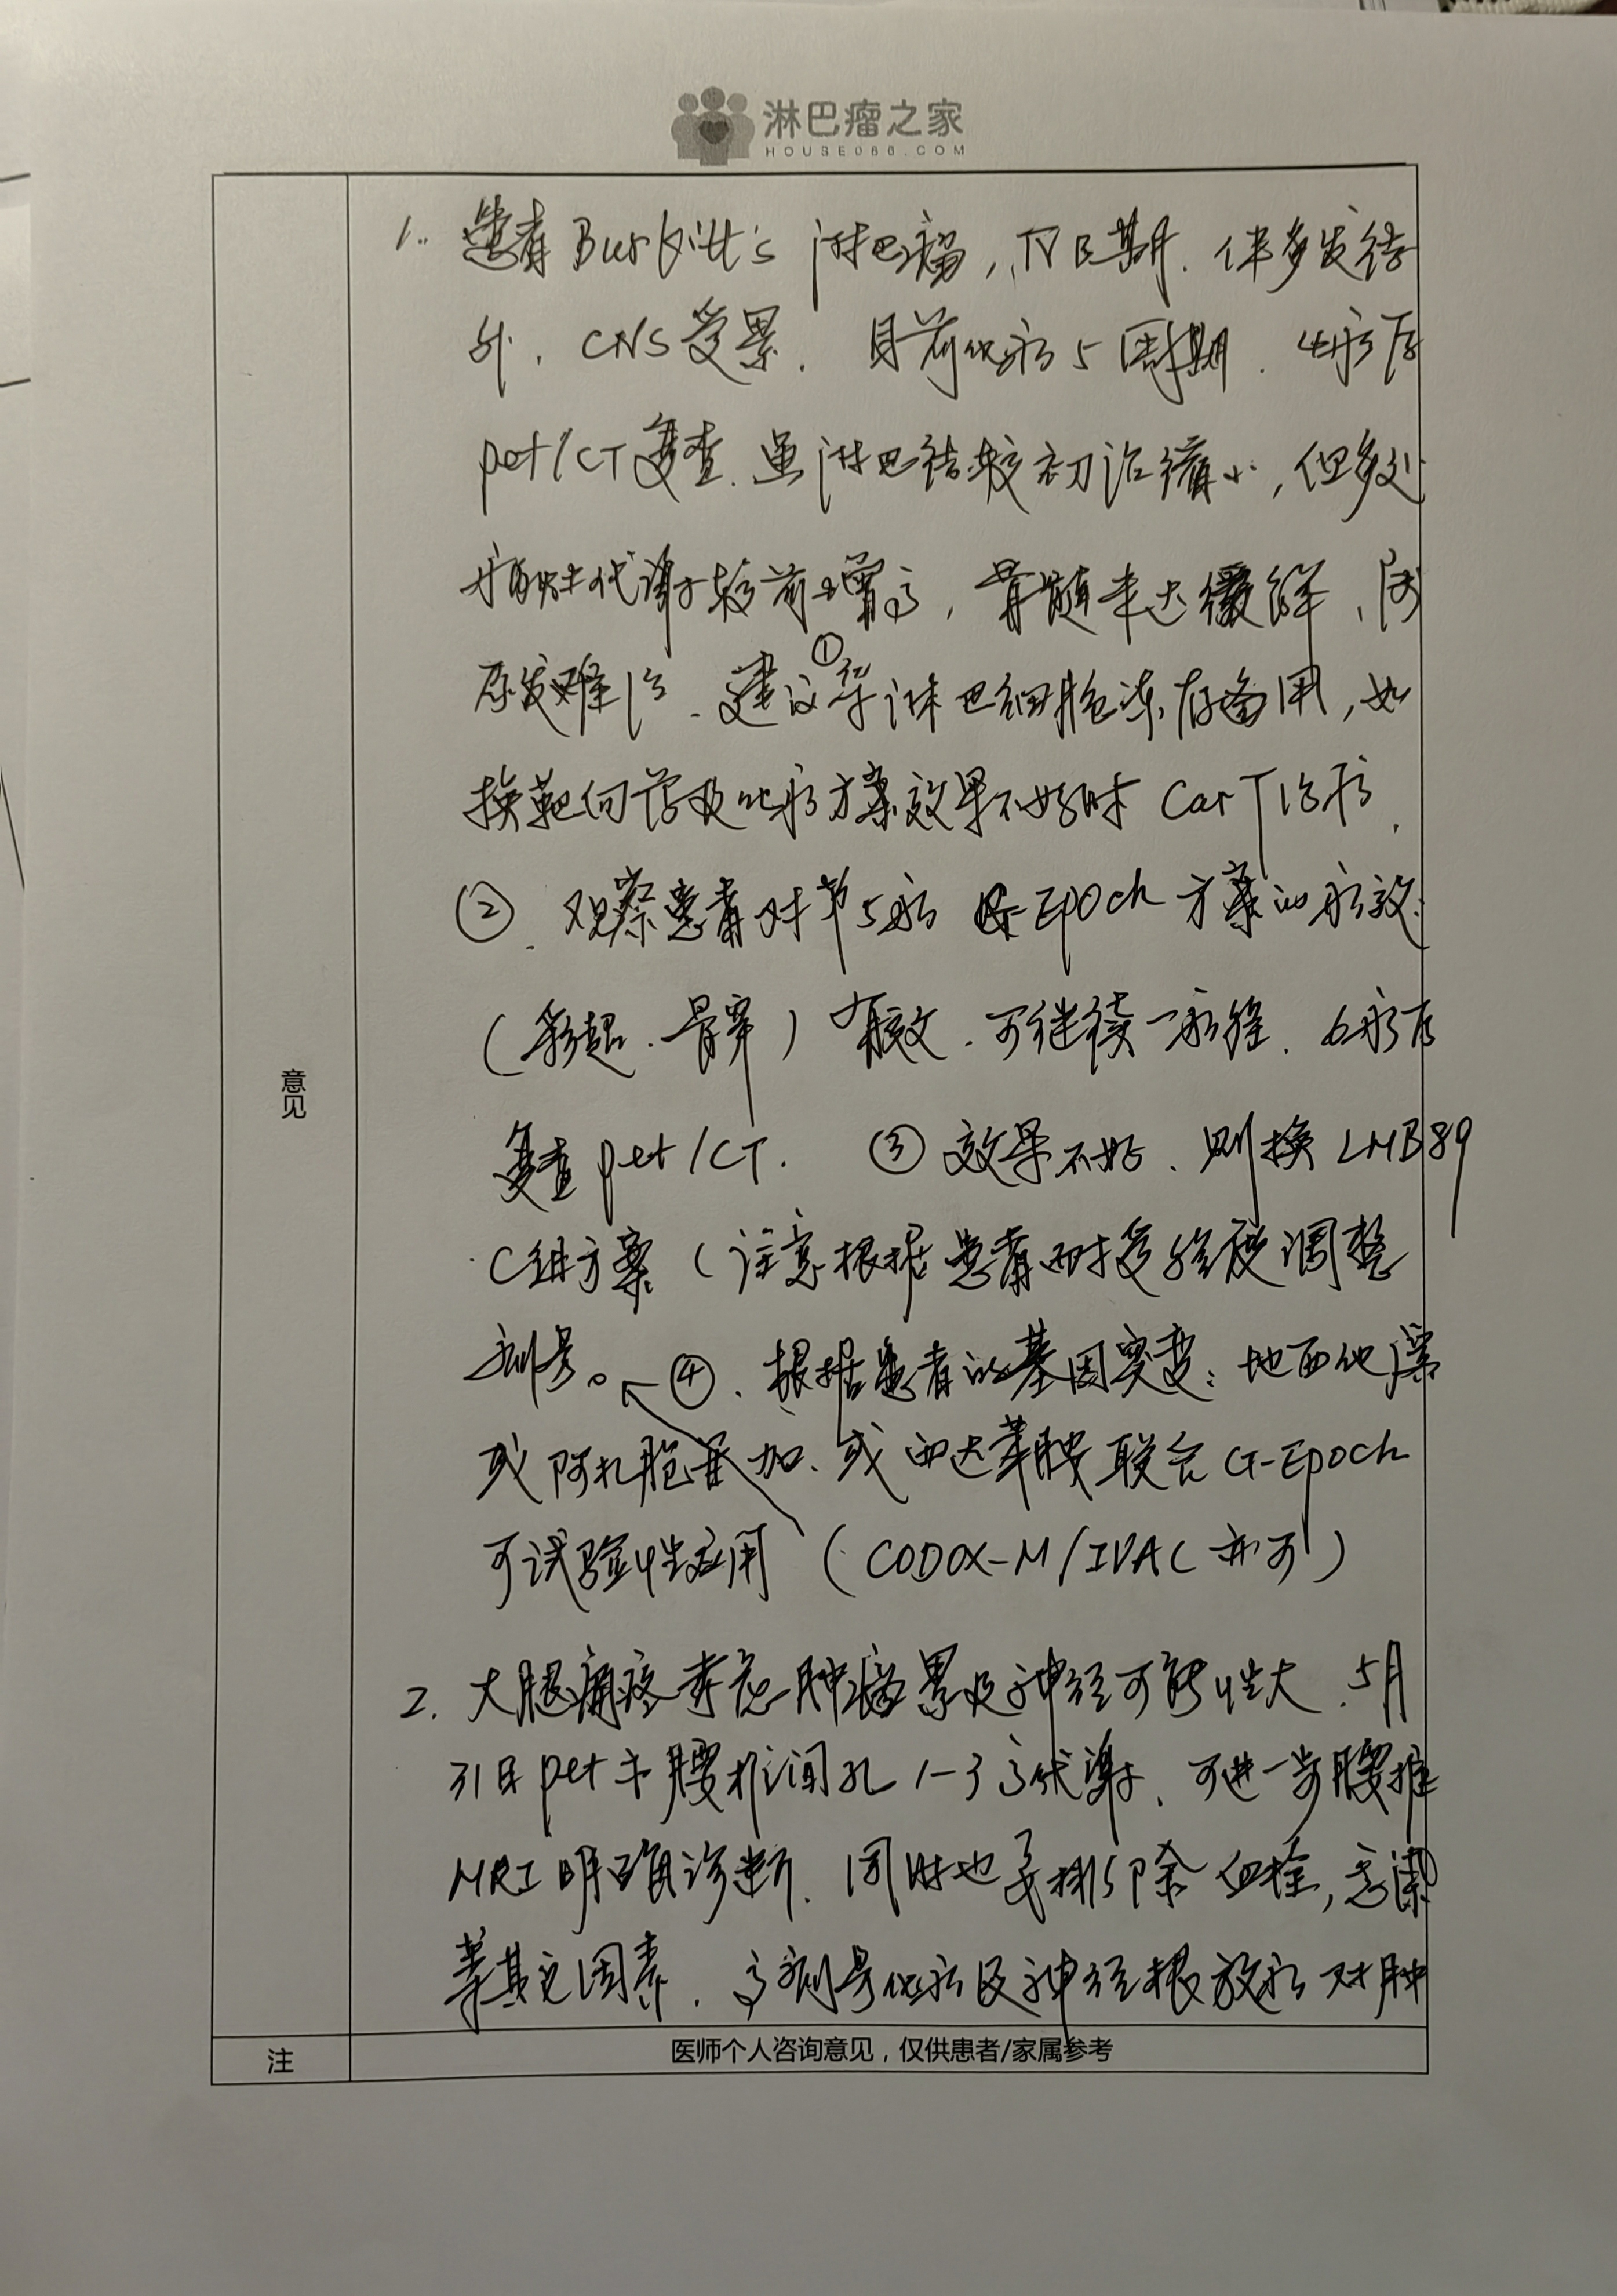 淋巴瘤之家
HOUSE086.COM
1. 患者Burkitt's 淋巴瘤,IVB期. 伴多发结
外、CNS受累. 目前化疗5周期. 4疗后
pet/CT复查. 虽淋巴结较初治缩小,但多处
病灶代谢较前增高,骨髓未达缓解,属
原发难治. 建议①行淋巴细胞冻存备用,如
换靶向药及化疗方案效果不好时 CarT治疗.
②. 观察患者对第5疗 G-Epoch 方案的疗效
(彩超、骨穿)有效. 可继续一疗程. 6疗后
复查pet/CT. ③效果不好、则换LMB89
C组方案(注意根据患者耐受程度调整
剂量。④、根据患者的基因突变:地西他滨
或阿扎胞苷加、或西达苯胺联合G-Epoch
可试验性应用 (CODOX-M/IVAC亦可)
2. 大腿痛疼考虑肿瘤累及神经可能性大. 5月
31日pet示腰椎间孔1-3高代谢、可进一步腰椎
MRI明确诊断. 同时也要排除血栓,感染
等其它因素. 高剂量化疗及神经根放疗对肿
意见
注
医师个人咨询意见,仅供患者/家属参考